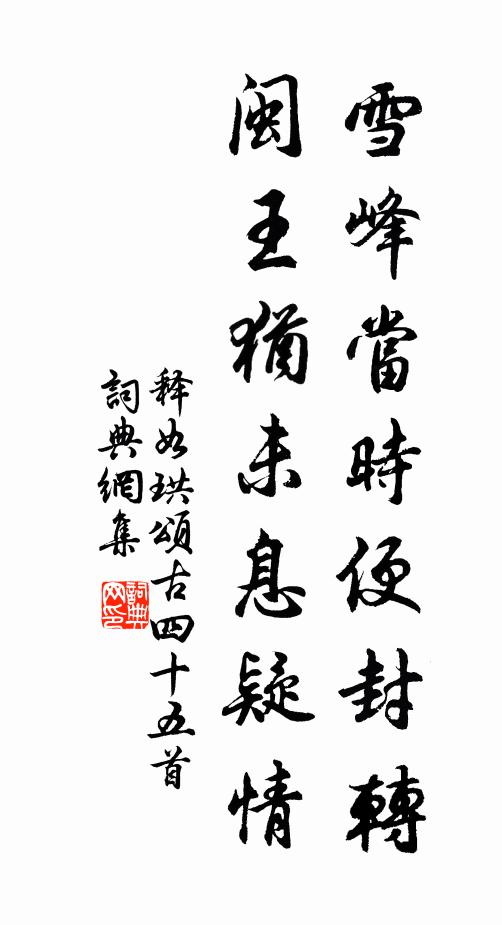 雪峰當時便封轉
閩王猶未息疑情
释如珙頌古四十五首
詞典網集
詞典网印